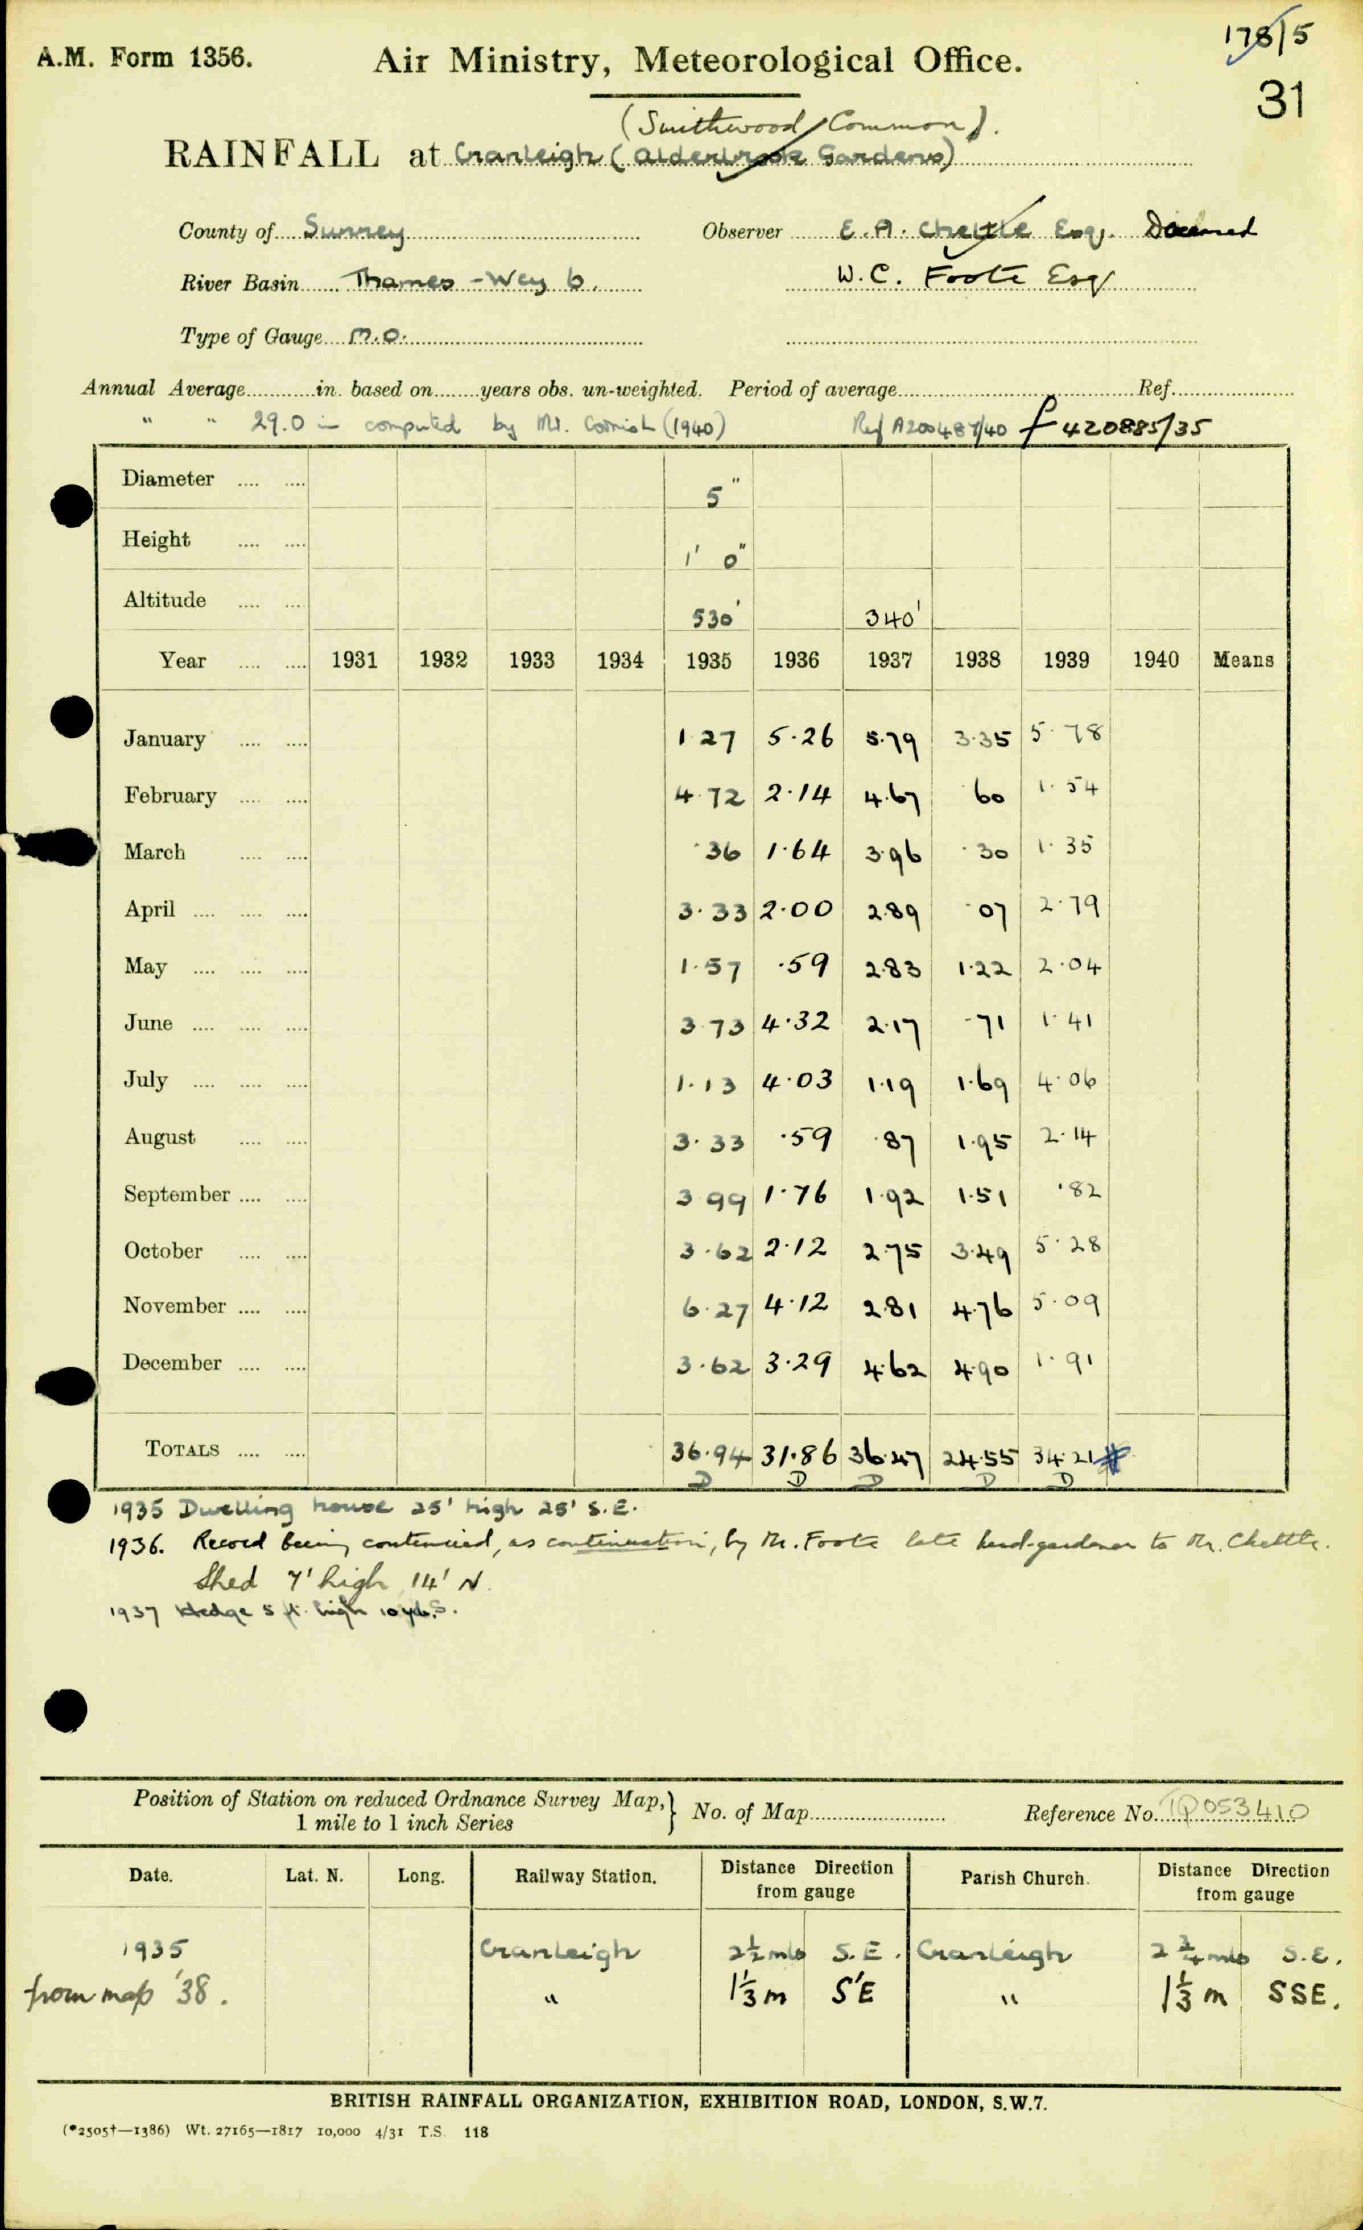 178/5
A.M. Form 1356. Air Ministry, Meteorological Office.
31
(Smithwood Common).
RAINFALL at Cranleigh (Alderbrook Gardens)
County of Surrey Observer E. A. Chettle Esq. Deceased
River Basin Thames - Wey 6. W. C. Foote Esq
Type of Gauge M.O.
Annual Average in. based on years obs. un-weighted. Period of average Ref.
" " 29.0 in computed by Mr. Cornish (1940) Ref A200487/40 f 420885/35
Diameter 5"
Height 1' 0"
Altitude 530' 340'
Year 1931 1932 1933 1934 1935 1936 1937 1938 1939 1940 Means
January 1.27 5.26 5.79 3.35 5.78
February 4.72 2.14 4.67 .60 1.54
March .36 1.64 3.96 .30 1.35
April 3.33 2.00 2.89 .07 2.79
May 1.57 .59 2.83 1.22 2.04
June 3.73 4.32 2.17 .71 1.41
July 1.13 4.03 1.19 1.69 4.06
August 3.33 .59 .87 1.95 2.14
September 3.99 1.76 1.92 1.51 .82
October 3.62 2.12 2.75 3.49 5.28
November 6.27 4.12 2.81 4.76 5.09
December 3.62 3.29 4.62 4.90 1.91
TOTALS 36.94 31.86 36.47 24.55 34.21 #
D D D D D
1935 Dwelling house 25' high 25' S.E.
1936. Record being continued, as continuation, by Mr. Foote late head-gardener to Mr. Chettle.
Shed 7' high 14' N.
1937 Hedge 5 ft. high 10 yds. S.
Position of Station on reduced Ordnance Survey Map, 1 mile to 1 inch Series } No. of Map Reference No. TQ 053410
Date. Lat. N. Long. Railway Station. Distance Direction from gauge Parish Church. Distance Direction from gauge
1935 Cranleigh 2½ mls S.E. Cranleigh 2¾ mls S.E.
from map '38. " 1⅓ m S'E " 1⅓ m SSE.
BRITISH RAINFALL ORGANIZATION, EXHIBITION ROAD, LONDON, S.W.7.
(*2505†—1386) Wt. 27165—1817 10,000 4/31 T.S. 118